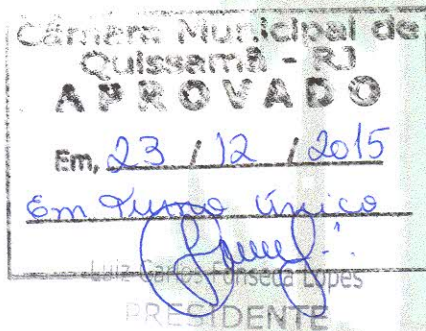 Câmara Municipal de
Quissamã - RJ
APROVADO
Em, 23 / 12 / 2015
Em Turno Único
Luiz Carlos Fonseca Lopes
PRESIDENTE